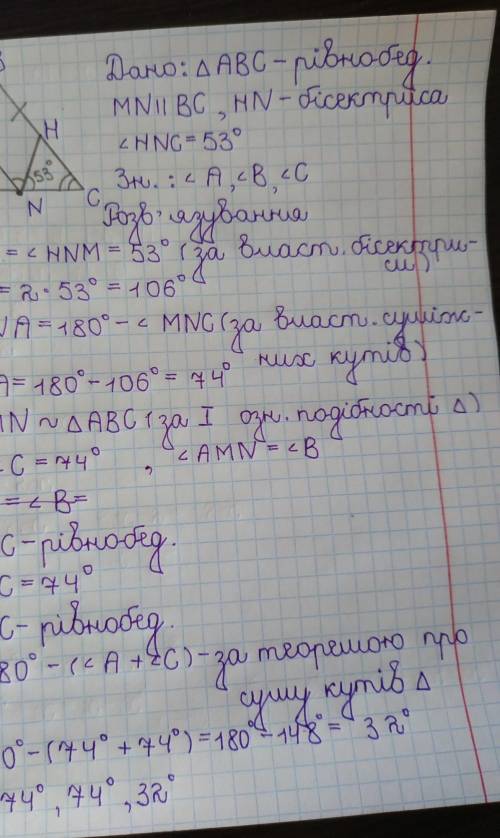 B
H
53°
N
C
Дано: △ABC - рівнобед.
MN || BC, HN - бісектриса
∠HNC = 53°
Зн.: ∠A, ∠B, ∠C
Розв'язування
= ∠HNM = 53° (за власт. бісектри-
си)
= 2 · 53° = 106°
A = 180° - ∠MNC (за власт. суміж-
них кутів)
A = 180° - 106° = 74°
N ~ △ABC (за I озн. подібності △)
C = 74°, ∠AMN = ∠B
= ∠B =
C - рівнобед.
C = 74°
C - рівнобед.
80° - (∠A + ∠C) - за теоремою про
суму кутів △
0° - (74° + 74°) = 180° - 148° = 32°
74°, 74°, 32°